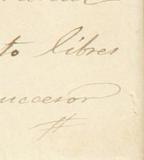 to libres
uccesor